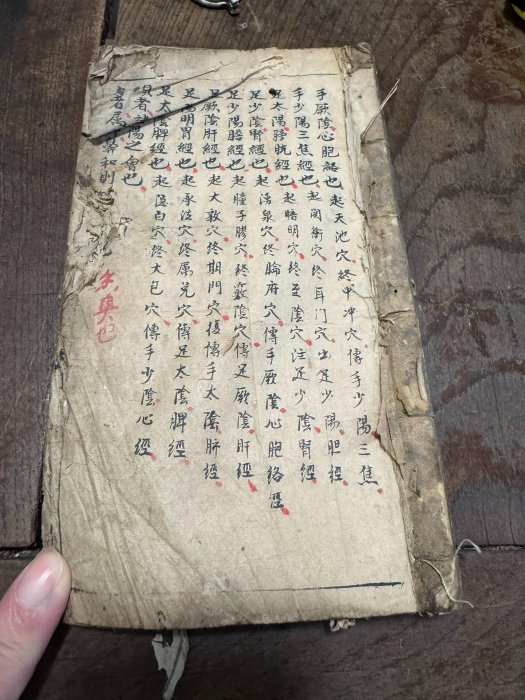 手厥陰心胞絡也起天池穴終中冲穴傳手少陽三焦
手少陽三焦經也起関衝穴終耳门穴出足少陽胆經
足太陽膀胱經也起睛明穴終至陰穴注足少陰腎經
足少陰腎經也起湧泉穴終腧府穴傳手厥陰心胞絡經
足少陽膽經也起瞳子膠穴終竅陰穴傳足厥陰肝經
足厥陰肝經也起大敦穴終期門穴復傳手太陰肺經
足陽明胃經也起承泣穴終厲兑穴傳足太陰脾經
足太陰脾經也起隐白穴終大包穴傳手少陰心經
頭者諸陽之會也